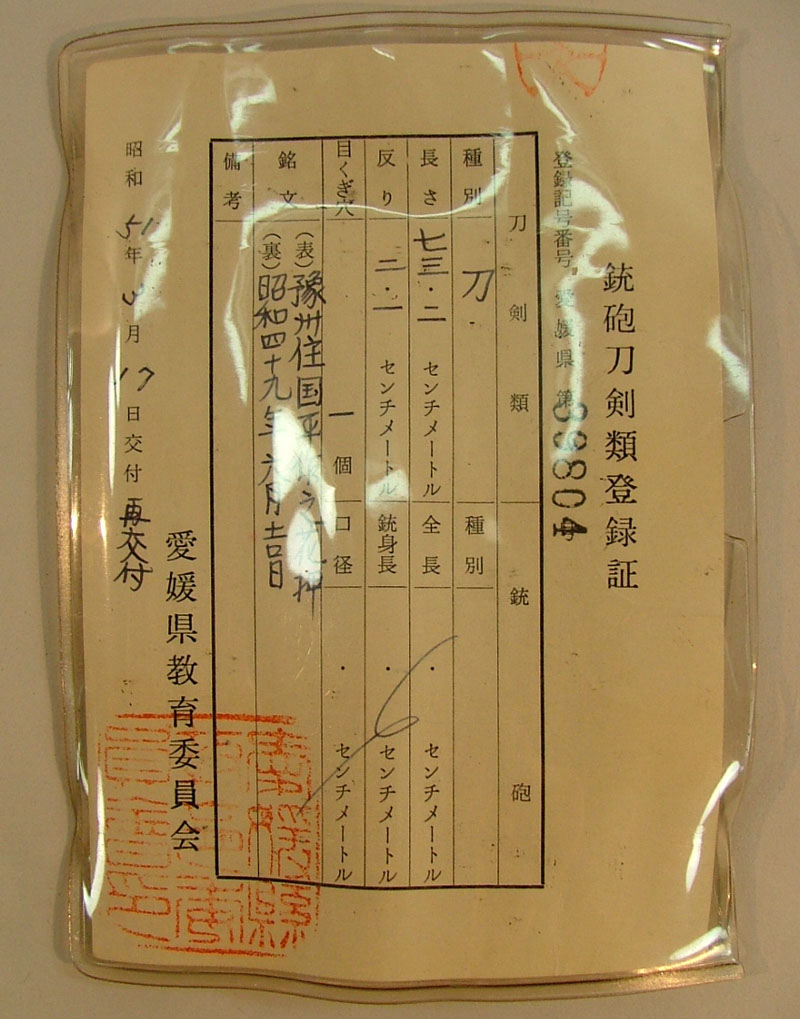 銃砲刀剣類登録証
登録記号番号 愛媛県 第39804号
刀剣類
種別 刀
長さ 七三・二 センチメートル
反り 二・一 センチメートル
目くぎ穴 一個
銘文 (表) 豫州住国平 花押
(裏) 昭和四十九年六月吉日
備考
銃砲
種別
全長 ・ センチメートル
銃身長 ・ センチメートル
口径 ・ センチメートル
昭和51年3月17日交付 再交付
愛媛県教育委員会